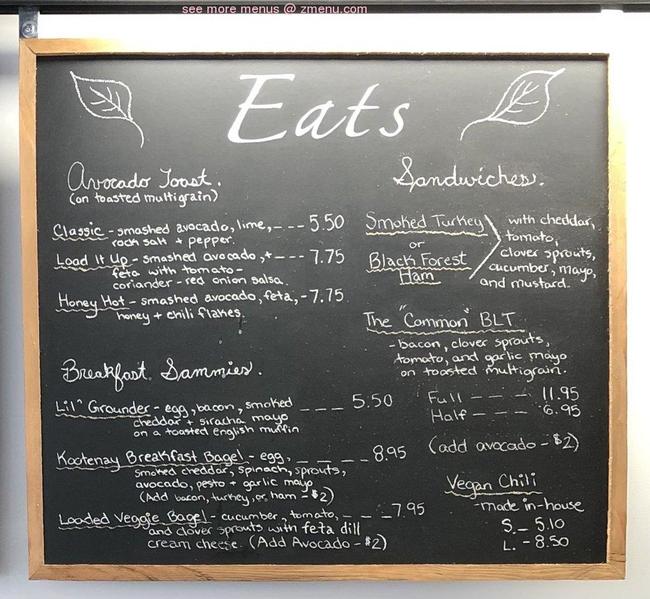 see more menus @ zmenu.com
Eats
Avocado Toast.
(on toasted multigrain)
Classic - smashed avocado, lime, - - - 5.50
rock salt + pepper.
Load It Up - smashed avocado, + - - - 7.75
feta with tomato -
coriander - red onion salsa.
Honey Hot - smashed avocado, feta, - 7.75
honey + chili flakes.
Breakfast Sammies.
Lil" Grounder - egg, bacon, smoked _ _ _ 5.50
cheddar + siracha mayo
on a toasted english muffin
Kootenay Breakfast Bagel - egg, _ _ _ _ 8.95
smoked cheddar, spinach, sprouts,
avocado, pesto + garlic mayo
(Add bacon, turkey, or, ham - $2)
Loaded Veggie Bagel - cucumber, tomato, _ _ _ 7.95
and clover sprouts with feta dill
cream cheese. (Add Avocado - $2)
Sandwiches.
Smoked Turkey
or
Black Forest
Ham
with cheddar,
tomato,
clover sprouts,
cucumber, mayo,
and mustard.
The "Common" BLT
- bacon, clover sprouts,
tomato, and garlic mayo
on toasted multigrain.
Full - - - 11.95
Half - - - 6.95
(add avocado - $2)
Vegan Chili
- made in-house
S. - 5.10
L. - 8.50